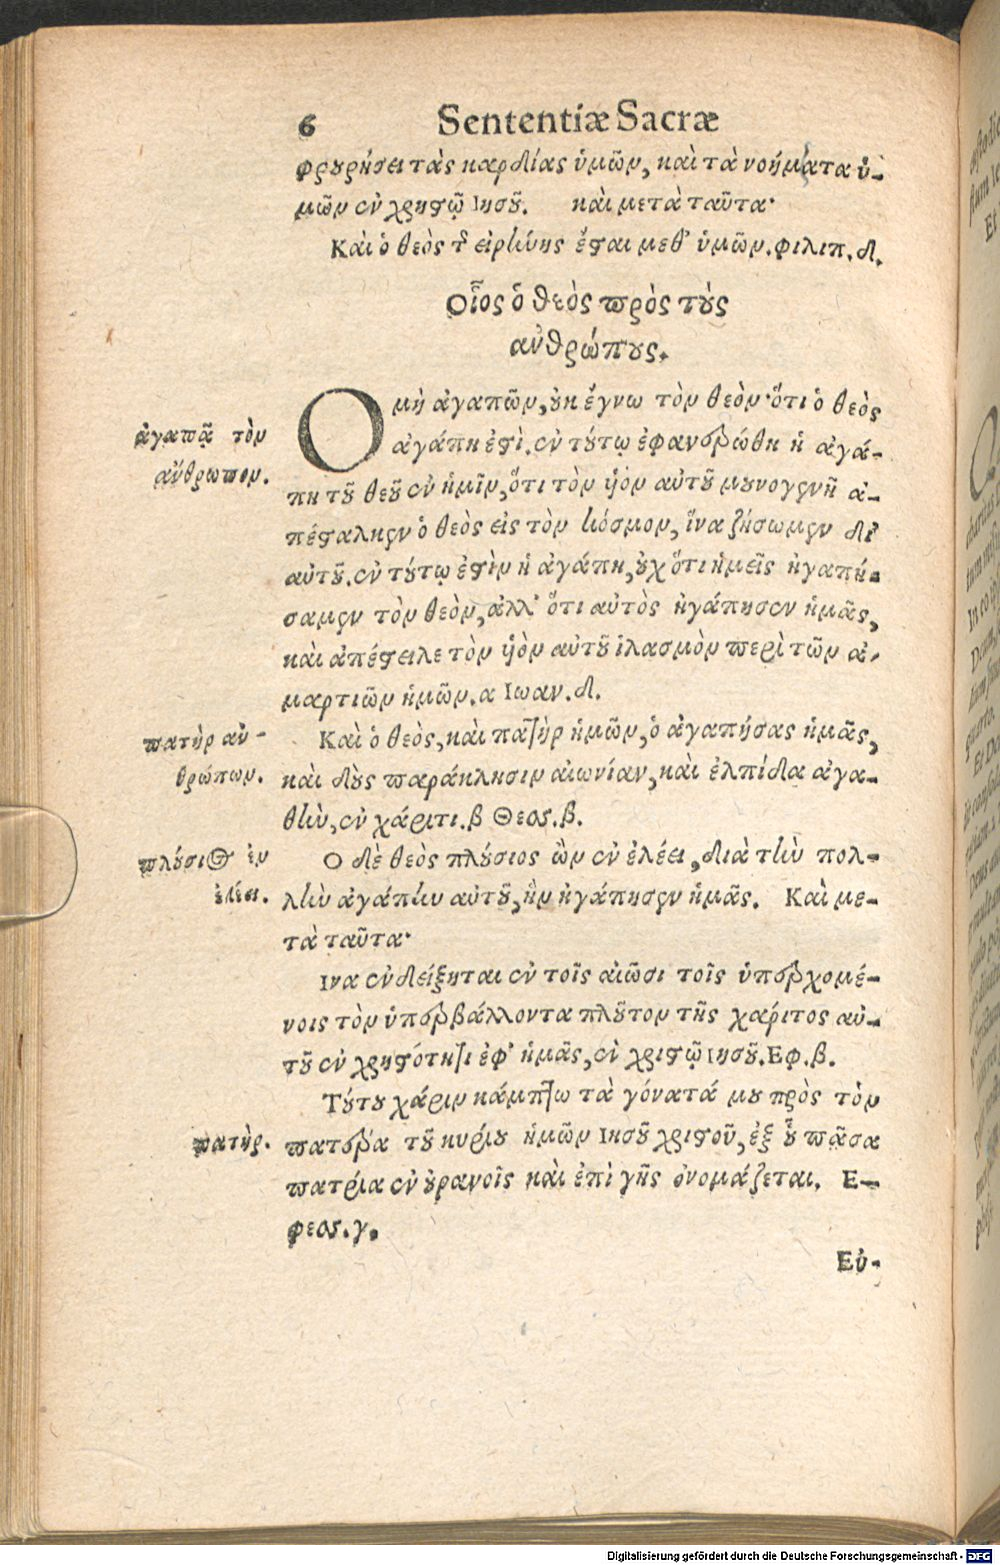 6 Sententiæ Sacræ
φρουρήσει τὰς καρδίας ὑμῶν, καὶ τὰ νοήματα ὑ-
μῶν ἐν χρηστῷ Ιησοῦ. καὶ μετὰ ταῦτα·
Καὶ ὁ θεὸς τῆς εἰρήνης ἔσται μεθ' ὑμῶν. φιλιπ. δ.
Οἷος ὁ θεὸς πρὸς τοὺς
ἀνθρώπους.
Ο μὴ ἀγαπῶν, οὐκ ἔγνω τὸν θεὸν· ὅτι ὁ θεὸς
ἀγαπᾷ τὸν
ἀγάπη ἐστὶ. ἐν τούτῳ ἐφανερώθη ἡ ἀγά-
ἄνθρωπον.
πη τοῦ θεοῦ ἐν ἡμῖν, ὅτι τὸν υἱὸν αὐτοῦ μονογενῆ ἀ-
πέσταλκεν ὁ θεὸς εἰς τὸν κόσμον, ἵνα ζήσωμεν δι'
αὐτοῦ. ἐν τούτῳ ἐστὶν ἡ ἀγάπη, οὐχ ὅτι ἡμεῖς ἠγαπή-
σαμεν τὸν θεὸν, ἀλλ' ὅτι αὐτὸς ἠγάπησεν ἡμᾶς,
καὶ ἀπέστειλε τὸν υἱὸν αὐτοῦ ἱλασμὸν περὶ τῶν ἁ-
μαρτιῶν ἡμῶν. α Ιωαν. δ.
πατὴρ ἀν-
Καὶ ὁ θεὸς, καὶ πατὴρ ἡμῶν, ὁ ἀγαπήσας ἡμᾶς,
θρώπων.
καὶ δοὺς παράκλησιν αἰωνίαν, καὶ ἐλπίδα ἀγα-
θὴν, ἐν χάριτι. β Θεσ. β.
πλούσιος ἐν
Ο δὲ θεὸς πλούσιος ὢν ἐν ἐλέει, διὰ τὴν πολ-
ἐλέει.
λὴν ἀγάπην αὐτοῦ, ἣν ἠγάπησεν ἡμᾶς. Καὶ με-
τὰ ταῦτα·
Ινα ἐνδείξηται ἐν τοῖς αἰῶσι τοῖς ὑπερχομέ-
νοις τὸν ὑπερβάλλοντα πλοῦτον τῆς χάριτος αὐ-
τοῦ ἐν χρηστότητι ἐφ' ἡμᾶς, ἐν χριστῷ Ιησοῦ. Εφ. β.
Τούτου χάριν κάμπτω τὰ γόνατά μου πρὸς τὸν
πατὴρ.
πατέρα τοῦ κυρίου ἡμῶν Ιησοῦ χριστοῦ, ἐξ οὗ πᾶσα
πατρία ἐν οὐρανοῖς καὶ ἐπὶ γῆς ὀνομάζεται. Ε-
φεσ. γ.
Εὐ-
Digitalisierung gefördert durch die Deutsche Forschungsgemeinschaft - DFG